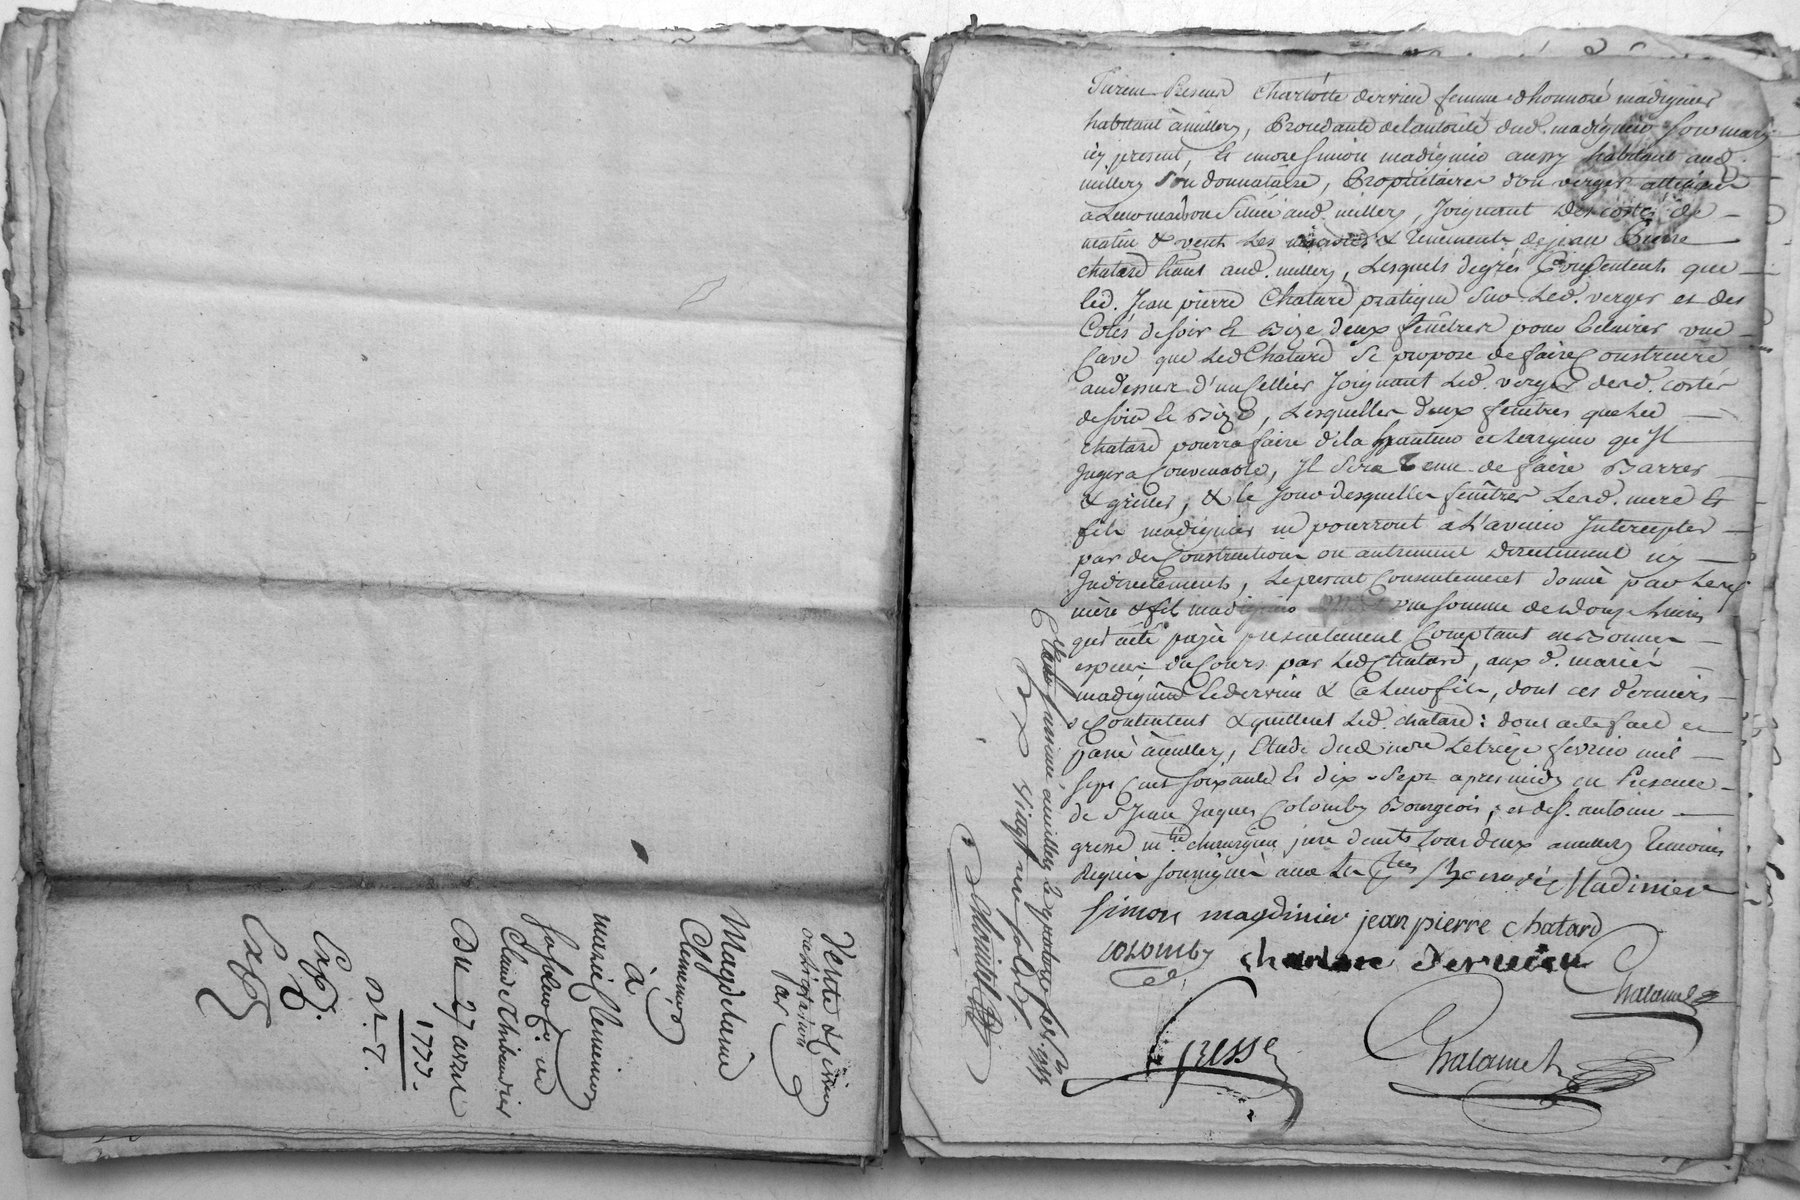 Vente &
par
Magdelaine
Clemenso
à
marie Clemenso
Claude Thibaudier
Du 27 avril
1777.
Exp.
furem Presens Charlotte dervieu femme d'honnoré madignier
habitant à millery, Procédante de l'autorité dud. madignier son mary
icy present, & encore Simon madignier aussy habitant aud.
millery son donnataire, Proprietaires d'un verger attenant
a Leur maison Situé aud. millery, Joignant des costés de
matin & vent Les & tenements de jean Pierre
chatard hant aud. millery, Lesquels degrés Consentent que
led. Jean pierre Chatard pratique sur Led. verger et des
Cotés de soir & Bize deux fenêtres pour Eclairer une
Cave que Led Chatard se propose de faire Construire
audessus d'un Cellier Joignant Led. verger desd. costés
de soir & Bize, Lesquelles deux fenêtres que Led
Chatard pourra faire de la hauteur et Largeur qu'Il
Jugera Convenable, Il Sera tenu de faire Barrer
& griller, & le Jour desquelles fenêtres Lesd. mere &
fils madignier ne pourront a L'avenir Intercepter
par des Constructions ou autrement directement ny
Indirectement, Le present Consentement donné par Lesd
mère & fils madignier une somme de douze Livres
qui a été payée presentement Comptant en Bonnes
especes du Cours par Led Chatard, aux d. mariés
madignier & dervieu & a Leur fils, dont ces derniers
se Contentent & quittent Led. chatard : dont acte fait et
passé à millery, Etude dud nore Le treize fevrier mil
sept Cent soixante & dix-sept apres midy en Presence
de Sr Jean Jaques Colomby Bourgeois, et de Sr. antoine
gresse me chirurgien juré deme tous deux a millery temoins
Requis soussignés avec Les Ptes honoré Madinier
Simon magdinier jean pierre chatard
COLOMBY charlote dervieu
Chalamel
Gresse Chalamel
Controllé à millery Le quatorze fev. 1777